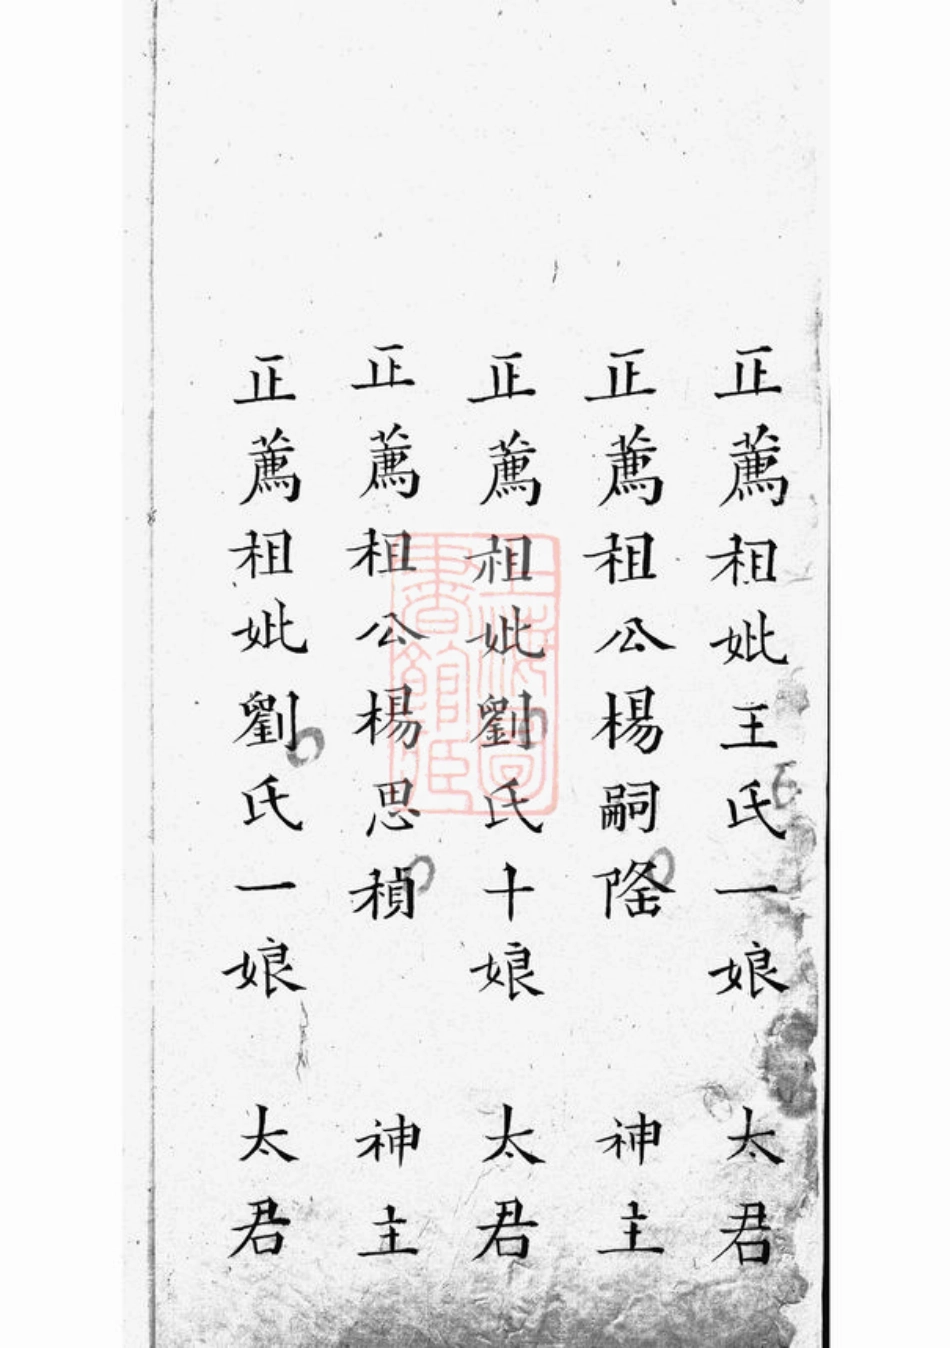 正薦祖妣王氏一娘 太君
正薦祖公楊嗣隆 神主
正薦祖妣劉氏十娘 太君
正薦祖公楊思稹 神主
正薦祖妣劉氏一娘 太君
上海圖書館藏